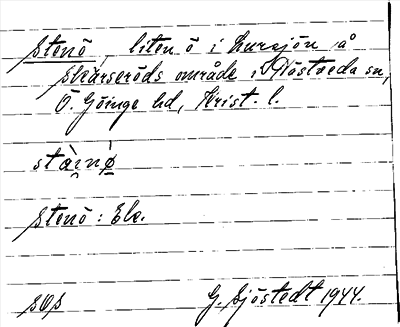 Stenö, liten ö i Lursjön å
Skärseröds område i Röstveda sn,
Ö. Göinge hd, Krist. l.
stæ̀i̯nǿ
Stenö: Ek.
sOs G. Sjöstedt 1944.